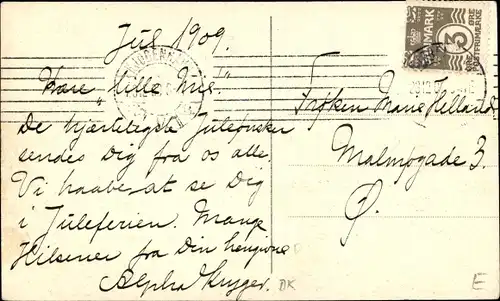 Jul 1909.
Kære "lille Mis!"
De hjærteligste Juleønsker
sendes Dig fra os alle.
Vi haaber at se Dig
i Juleferien. Mange
Hilsener fra Din hengivne
Alpha Kryger.
DK
MARK
3
ØRE
Frøken Marie Helland
Malmøgade 3.
Ø.
E